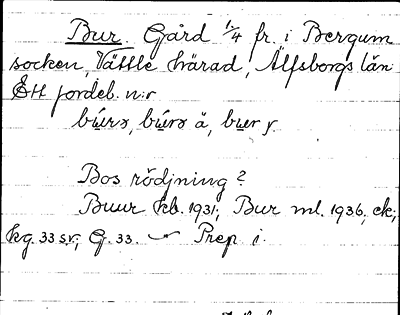 Bur. Gård 1/4 fr. i Bergum
socken, Vättle härad, Älfsborgs län
Ett jordeb. n:r
Bos rödjning?
Buur kb. 1931; Bur ml. 1936, ek;
kg. 33 sv; G. 33. Prep i.